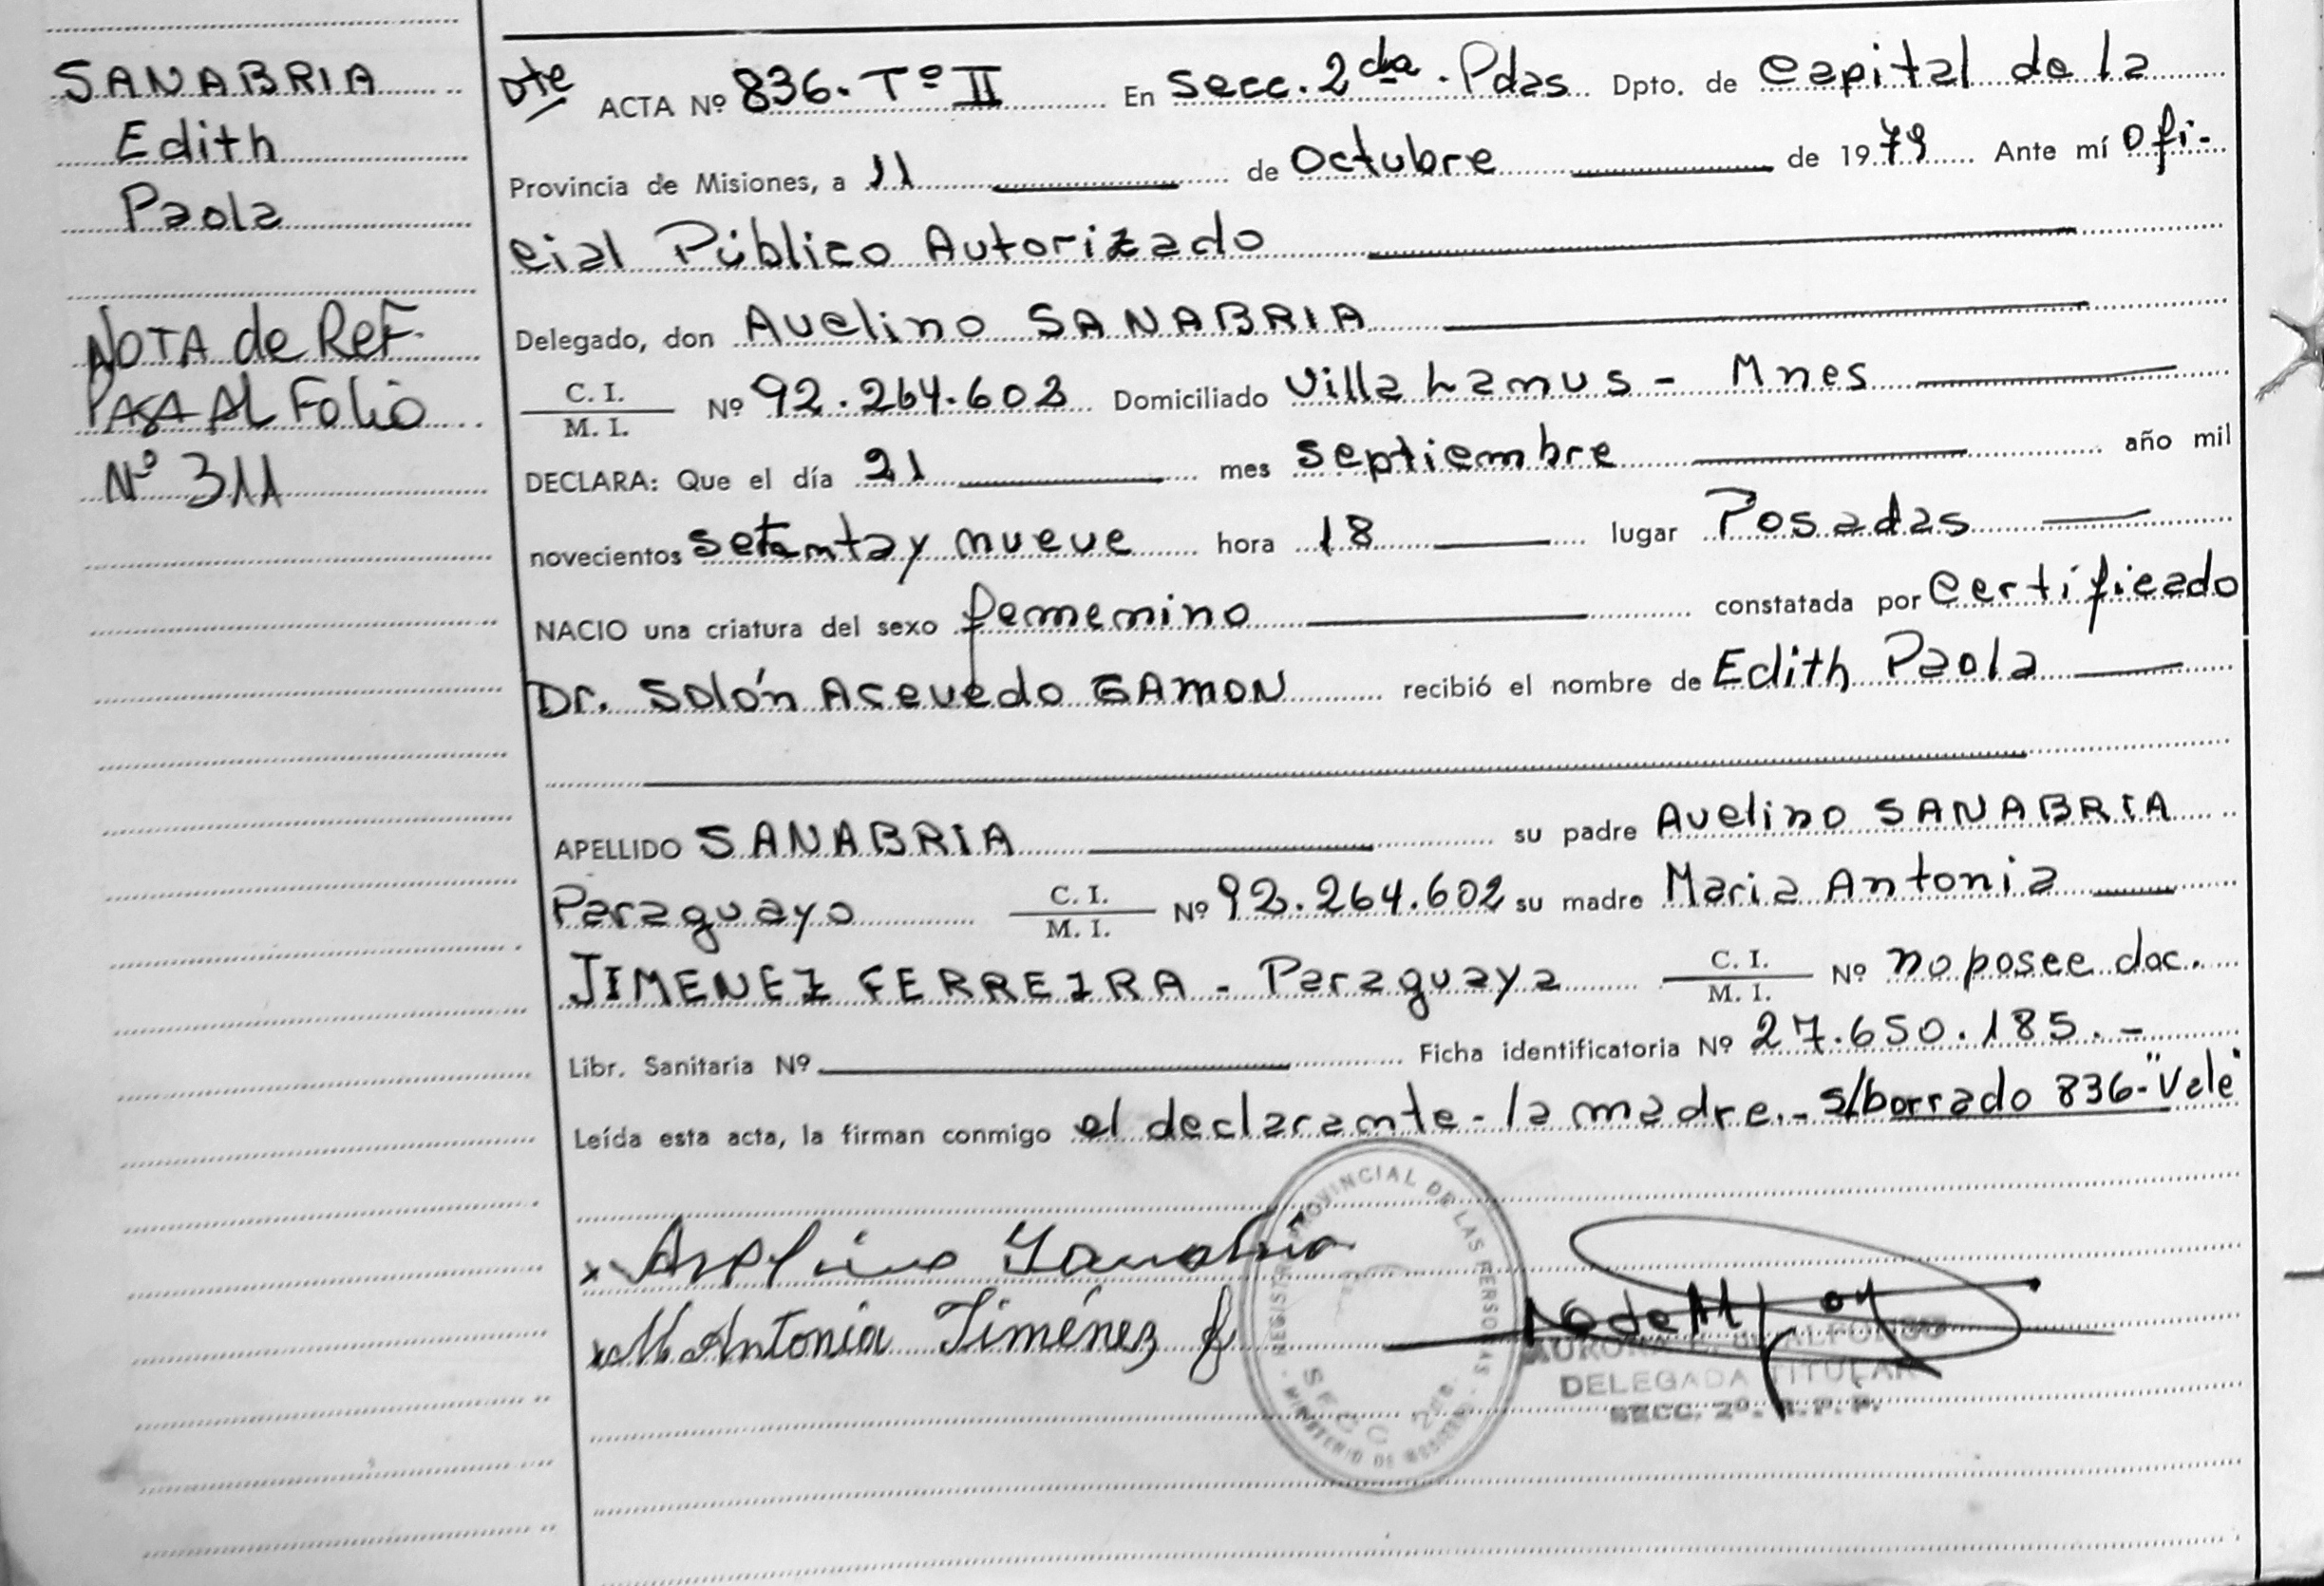 SANABRIA
Edith
Paola
NOTA de REF.
PASA AL FOLIO
Nº 311
Dte ACTA Nº 836. Tº II En Secc. 2da. Pdas Dpto. de Capital de la
Provincia de Misiones, a 11 de Octubre de 1979 Ante mí Ofi-
cial Público Autorizado
Delegado, don Avelino SANABRIA
C. I.
M. I.
Nº 92.264.602 Domiciliado Villa Lanus - Mnes
DECLARA: Que el día 21 mes septiembre año mil
novecientos setenta y nueve hora 18 lugar Posadas
NACIO una criatura del sexo femenino constatada por Certificado
Dr. Solón Acevedo GAMON recibió el nombre de Edith Paola
APELLIDO SANABRIA su padre Avelino SANABRIA
Paraguayo C. I. M. I. Nº 92.264.602 su madre Maria Antonia
JIMENEZ FERREIRA - Paraguaya C. I. M. I. Nº no posee doc.
Libr. Sanitaria Nº Ficha identificatoria Nº 27.650.185.-
Leída esta acta, la firman conmigo el declarante - la madre.- s/borrado 836-"Vale"
x Avelino Sanabria
x M Antonia Jiménez f
REGISTRO PROVINCIAL DE LAS PERSONAS
SECC. 2da.
MINISTERIO DE
DELEGADA TITULAR
SECC. 2º. R. P. P.